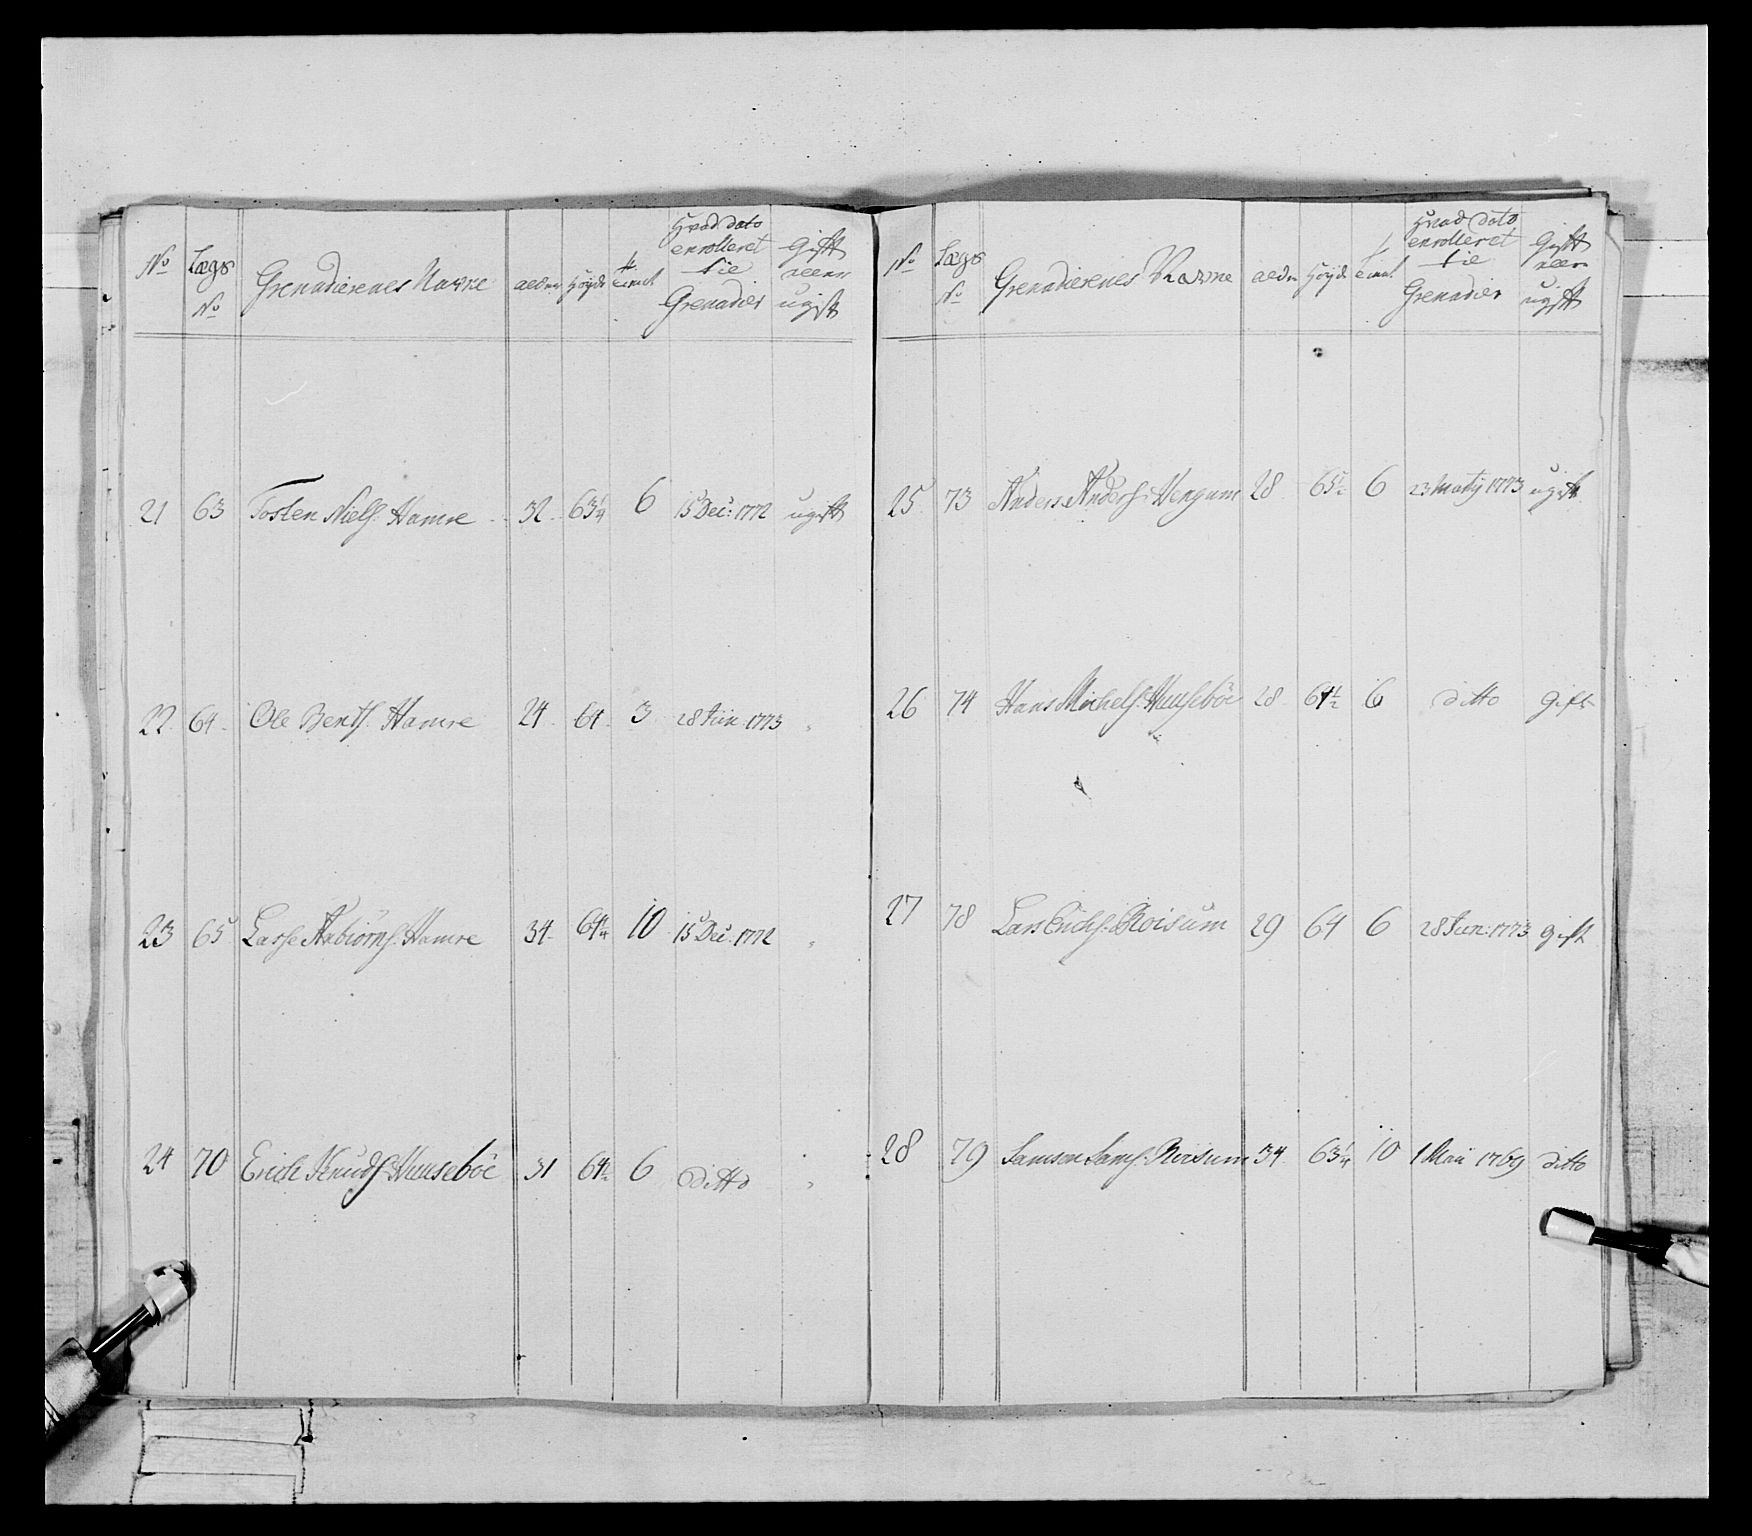 No Lægs No Grenadierenes Navne alder Høyde tient Hvad dato enrolleret til Grenadier Gift eller ugift
21 63 Tosten Niels: Hamre 32 63 1/4 6 15 Dec: 1772 ugift
22 64 Ole Bents: Hamre 24 64 3 28 Jun: 1773 "
23 65 Lasse Aabiörns: Hamre 34 64 1/4 10 15 Dec: 1772 "
24 70 Erich Knuds: Huuseböe 31 64 1/2 6 ditto "
No Lægs No Grenadierenes Navne alder Høyde tient Hvad dato enrolleret til Grenadier Gift eller ugift
25 73 Anders Anders: Vengum 28 65 1/2 6 23 Martÿ 1773 ugift
26 74 Hans Michels: Huusebøe 28 64 1/2 6 ditto gift
27 78 Lars Erichs: Roisum 29 64 6 28 Jun: 1773 gift
28 79 Samson Sams: Roisum 34 63 1/4 10 1 Maii 1769 ditto